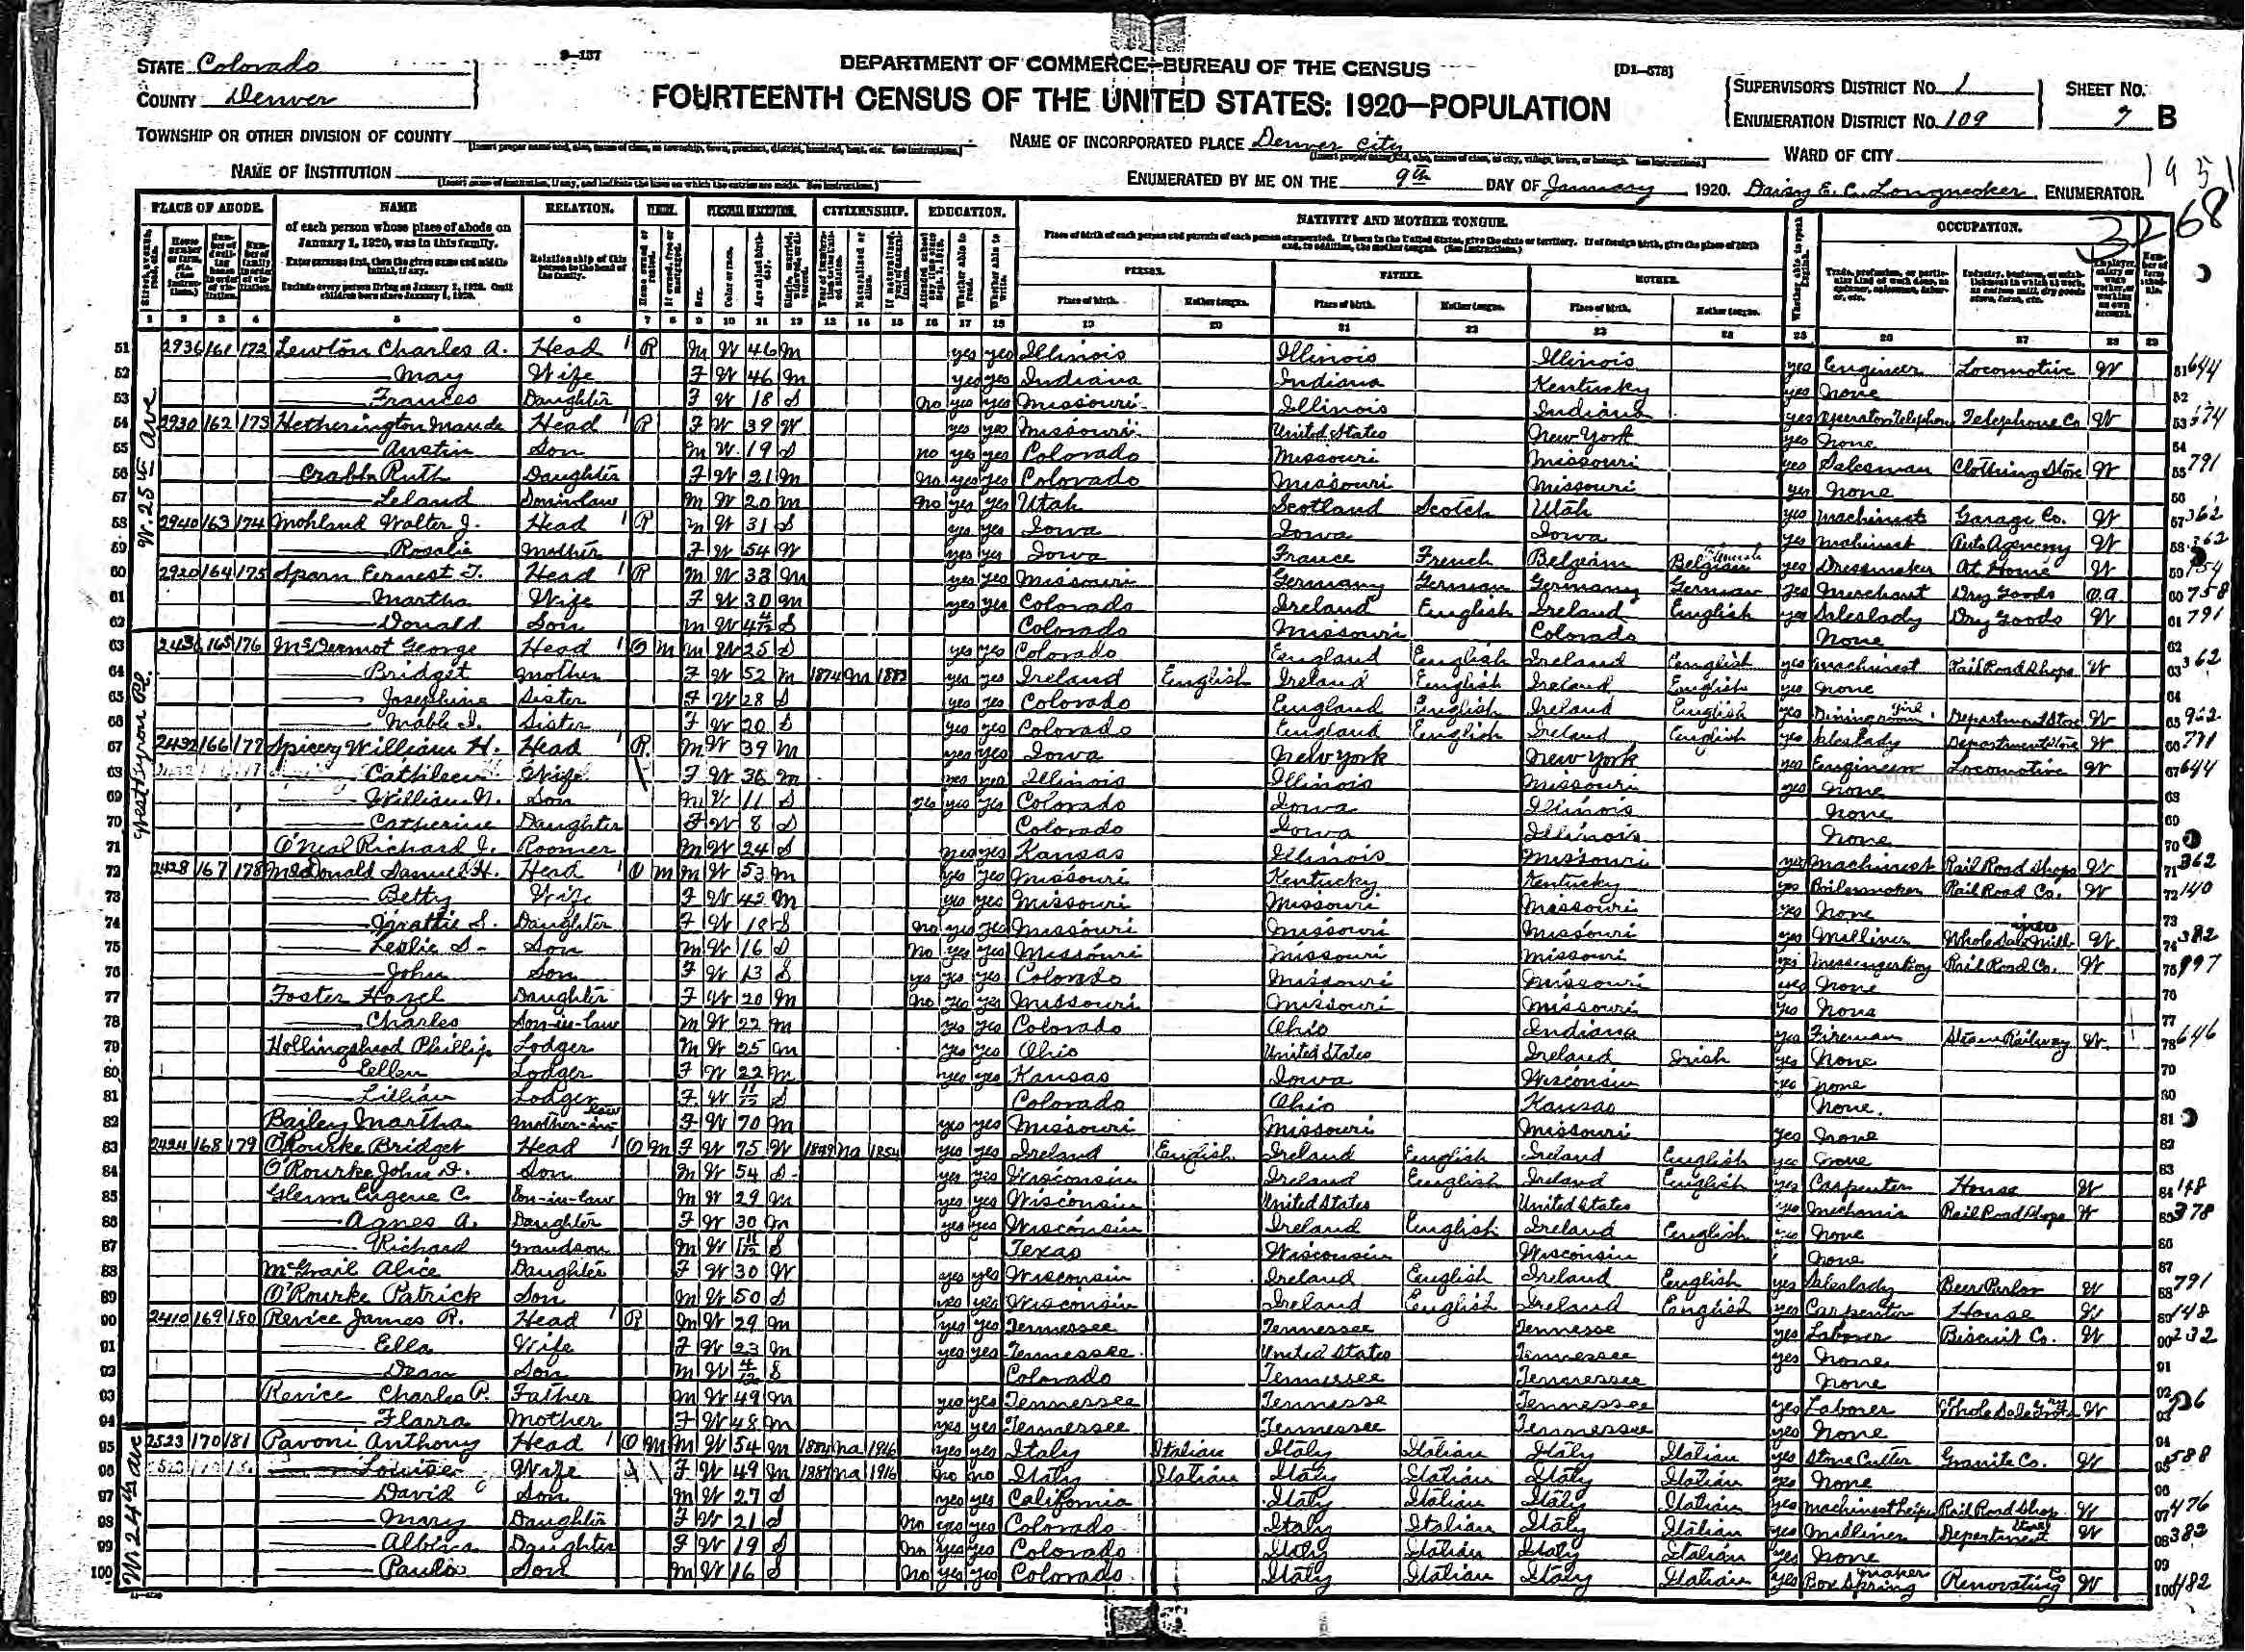 9—137
DEPARTMENT OF COMMERCE—BUREAU OF THE CENSUS
[D1—578]
STATE Colorado
COUNTY Denver
FOURTEENTH CENSUS OF THE UNITED STATES: 1920—POPULATION
SUPERVISOR'S DISTRICT NO. 1
ENUMERATION DISTRICT NO. 109
SHEET NO. 7 B
TOWNSHIP OR OTHER DIVISION OF COUNTY
NAME OF INCORPORATED PLACE Denver City
WARD OF CITY
NAME OF INSTITUTION
ENUMERATED BY ME ON THE 9th DAY OF January, 1920. Daisy E. C. Longnecker, ENUMERATOR.
1951
3268
PLACE OF ABODE. NAME RELATION. CITIZENSHIP. EDUCATION. NATIVITY AND MOTHER TONGUE. OCCUPATION.
of each person whose place of abode on January 1, 1920, was in this family.
Enter surname first, then the given name and middle initial, if any.
Include every person living on January 1, 1920. Omit children born since January 1, 1920.
Relationship of this person to the head of the family.
Place of birth of each person and parents of each person enumerated. If born in the United States, give the state or territory. If of foreign birth, give the place of birth and, in addition, the mother tongue. (See Instructions.)
PERSON. FATHER. MOTHER.
Place of birth. Mother tongue. Place of birth. Mother tongue. Place of birth. Mother tongue.
1 2 3 4 5 6 7 8 9 10 11 12 13 14 15 16 17 18 19 20 21 22 23 24 25 26 27 28 29
W. 25th Ave
51 2936 161 172 Lewton Charles A. Head 1 R M W 46 M yes yes Illinois Illinois Illinois yes Engineer Locomotive W 51 644
52 May Wife F W 46 M yes yes Indiana Indiana Kentucky yes None 52
53 Frances Daughter F W 18 S no yes yes Missouri Illinois Indiana yes Operator Telephone Telephone Co W 53 674
54 2930 162 173 Hetherington Maude Head 1 R F W 39 W yes yes Missouri United States New York yes None 54
55 Austin Son M W 19 S no yes yes Colorado Missouri Missouri yes Salesman Clothing Store W 55 791
56 Crabb Ruth Daughter F W 21 M No yes yes Colorado Missouri Missouri yes None 56
57 Leland Son in law M W 20 M No yes yes Utah Scotland Scotch Utah yes Machinist Garage Co. W 57 362
58 2940 163 174 Mohland Walter J. Head 1 R M W 31 S yes yes Iowa Iowa Iowa yes Machinist Auto Agency W 58 362
59 Rosalie Mother F W 54 W yes yes Iowa France French Belgian Belgian yes Dressmaker At Home W 59 154
60 2920 164 175 Sparn Eernest T. Head 1 R M W 33 M yes yes Missouri Germany German Germany German yes Merchant Dry Goods O.A 60 758
61 Martha Wife F W 30 M yes yes Colorado Ireland English Ireland English yes Saleslady Dry Goods W 61 791
62 Donald Son M W 4 4/12 S Colorado Missouri Colorado None 62
West Byron Pl.
63 2436 165 176 McDermot George Head 1 O M M W 25 S yes yes Colorado England English Ireland English yes Machinest Rail Road Shops W 63 362
64 Bridget Mother F W 52 M 1874 Na 1882 yes yes Ireland English Ireland English Ireland English yes None 64
65 Josephine Sister F W 28 S yes yes Colorado England English Ireland English yes Dining room girl Department Store W 65 962
66 Mable I. Sister F W 20 S yes yes Colorado England English Ireland English yes Saleslady Department Store W 66 791
67 2432 166 177 Spicery William H. Head 1 R M W 39 M yes yes Iowa New York New York yes Engineer Locomotive W 67 644
68 Cathileen Wife F W 36 M yes yes Illinois Illinois Missouri yes None 68
69 William N. Son M W 11 S yes yes yes Colorado Iowa Illinois None 69
70 Catherine Daughter F W 8 S Colorado Iowa Illinois None 70
71 O'Neal Richard J. Roomer M W 24 S yes yes Kansas Illinois Missouri yes Machinest Rail Road Shops W 71 362
72 2428 167 178 McDonald Samuel H. Head 1 O M M W 53 M yes yes Missouri Kentucky Kentucky yes Boilermaker Rail Road Co. W 72 140
73 Betty Wife F W 42 M yes yes Missouri Missouri Missouri yes None 73
74 Daughter F W 18 S No yes yes Missouri Missouri Missouri yes Milliner Whole Sale Mill W 74 382
75 Leslie S. Son M W 16 S No yes yes Missouri Missouri Missouri yes Messenger Boy Rail Road Co. W 75 997
76 John Son F W 13 S yes yes yes Colorado Missouri Missouri yes None 76
77 Foster Hazel Daughter F W 20 M No yes yes Missouri Missouri Missouri yes None 77
78 Charles Son-in-law M W 22 M yes yes Colorado Ohio Indiana yes Fireman Steam Railway W 78 646
79 Hollingshead Phillip Lodger M W 25 M yes yes Ohio United States Ireland Irish yes None 79
80 Ellen Lodger F W 22 M yes yes Kansas Iowa Wisconsin yes None 80
81 Lillian Lodger F W 11/12 S Colorado Ohio Kansas None. 81
82 Bailey Martha Mother-in-law F W 70 M yes yes Missouri Missouri Missouri yes None 82
83 2424 168 179 O'Rourke Bridget Head 1 O M F W 75 W 1849 Na 1854 yes yes Ireland English Ireland English Ireland English yes None 83
84 O'Rourke John D. Son M W 54 S yes yes Wisconsin Ireland English Ireland English yes Carpenter House W 84 148
85 Glenn Eugene C. Son-in-law M W 29 M yes yes Wisconsin United States United States yes Mechanic Rail Road Shops W 85 378
86 Agnes A. Daughter F W 30 M yes yes Wisconsin Ireland English Ireland English yes None 86
87 Richard Grandson M W 1 11/12 S Texas Wisconsin Wisconsin None 87
88 McGrail Alice Daughter F W 30 W yes yes Wisconsin Ireland English Ireland English yes Saleslady Beer Parlor W 88 791
89 O'Rourke Patrick Son M W 50 S yes yes Wisconsin Ireland English Ireland English yes Carpenter House W 89 148
90 2410 169 180 Revice James R. Head 1 R M W 29 M yes yes Tennessee Tennessee Tennesse yes Laborer Biscuit Co. W 90 232
91 Ella Wife F W 23 M yes yes Tennessee United States Tennessee yes None 91
92 Dean Son M W 4/12 S Colorado Tennessee Tennessee None 92
93 Revice Charles P. Father M W 49 M yes yes Tennessee Tennesse Tennessee yes Laborer Whole Sale W 93
94 Flarra Mother F W 48 M yes yes Tennessee Tennessee Tennessee yes None 94
W. 24th Ave
95 2523 170 181 Pavoni Anthony Head 1 O M M W 54 M 1884 Na 1916 yes yes Italy Italian Italy Italian Italy Italian yes Stone Cutter Granite Co. W 95 588
96 Louise Wife F W 49 M 1887 Na 1916 no no Italy Italian Italy Italian Italy Italian yes None 96
97 David C Son M W 27 S yes yes California Italy Italian Italy Italian yes Machinest helper Rail Road Shop W 97 476
98 Mary Daughter F W 21 S No yes yes Colorado Italy Italian Italy Italian yes Milliner Department Store W 98 382
99 Albina Daughter F W 19 S No yes yes Colorado Italy Italian Italy Italian yes None 99
100 Paulo Son M W 16 S No yes yes Colorado Italy Italian Italy Italian yes Box Spring maker Renovating Co W 100 482